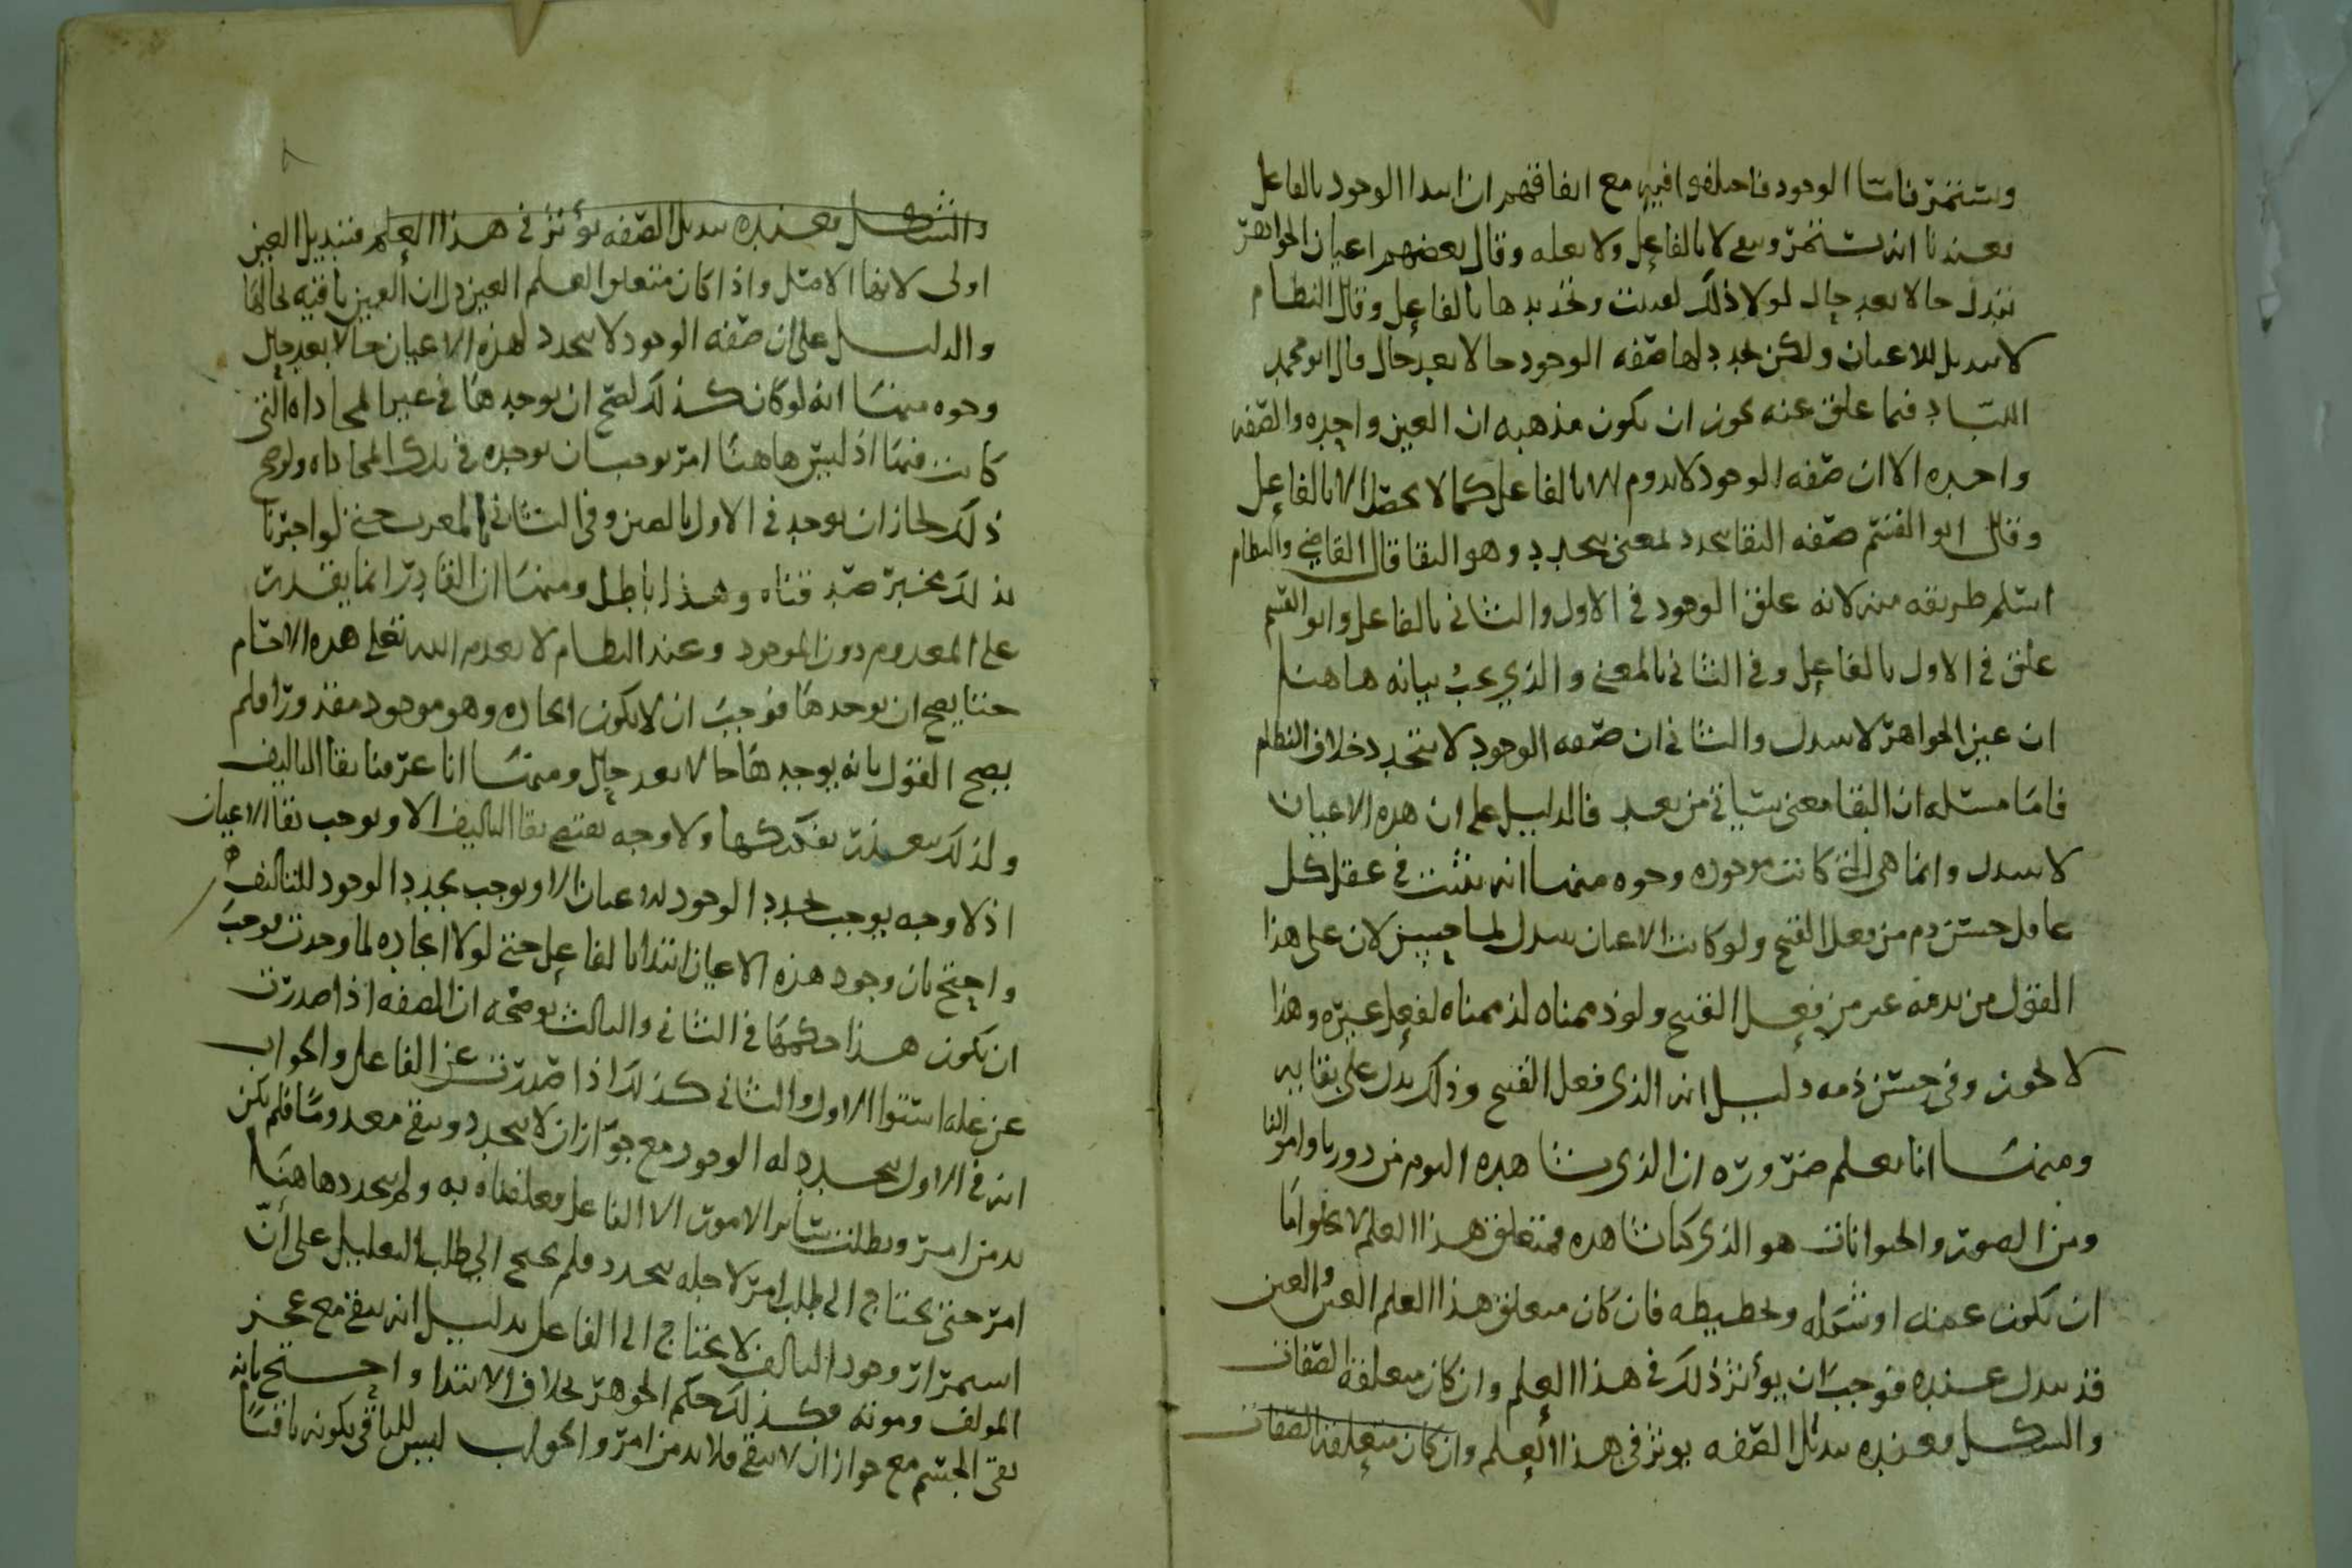 وتستمر فاما الوجود فاختلفوا فيه مع اتفاقهم ان ابتدا الوجود بالفاعل
فعندنا انه تستمر وتبقى لا بالفاعل ولا بعله وقال بعضهم اعيان الجواهر
تتبدل حالا بعد حال لولا ذلك وتجديدها بالفاعل وقال النظام
لا تتبدل الاعيان ولكن تجدد لها صفه الوجود حالا بعد حال قال ابو محمد
اللباد فيما علق عنه يجوز ان يكون مذهبه ان العين واحده والصفه
واحده الا ان صفه الوجود لا تدوم الا بالفاعل كما لا تحصل الا بالفاعل
وقال ابو القسم صفه البقا تتجدد لمعنى يتجدد وهو البقا قال القاضي والنظام
اسلم طريقه منه لانه علق الوجود في الاول والثاني بالفاعل وابو القسم
علق في الاول بالفاعل وفي الثاني بالمعنى والذي يجب بيانه هاهنا
ان عين الجواهر لا تتبدل والثاني ان صفه الوجود لا تتجدد خلاف النظام
فاما مسئله ان البقا معنى ستاتي من بعد فالدليل على ان هذه الاعيان
لا تتبدل وانما هي التي كانت موجوده وجوه منها انه يثبت في عقل كل
عاقل حسن ذم من فعل القبيح ولو كانت الاعيان تتبدل لما حسن لان على هذا
القول من نذمه غير من فعل القبيح ولو ذممناه لذممناه لفعل غيره وهذا
لا يجوز وفي حسن ذمه دليل انه الذي فعل القبيح وذلك يدل على بقايه
ومنها انا نعلم ضروره ان الذي نشاهده اليوم من دورنا واموالنا
ومن الصور والحيوانات هو الذي كنا نشاهده فمتعلق هذا العلم لا يخلو اما
ان يكون عينه او شكله وتخطيطه فان كان متعلق هذا العلم العين والعين
قد تتبدل عنده فوجب ان يؤثر ذلك في هذا العلم وان كان متعلقه الصفات
والشكل فعنده تبدل الصفه يوثر في هذا العلم وان كان متعلقه الصفات
والشكل فعنده تبدل الصفه يؤثر في هذا العلم فتبديل العين
اولى لانها الاصل واذا كان متعلق العلم العين دل ان العين باقيه بحالها
والدليل على ان صفه الوجود لا تتجدد لهذه الاعيان حالا بعد حال
وجوه منها انه لو كان كذلك لصح ان يوجدها في غير المحاذاه التي
كانت فيها اذ ليس هاهنا امر يوجب ان يوجده في تلك المحاذاه ولو صح
ذلك لجاز ان يوجد في الاول بالصين وفي الثاني بالمغرب حتى لو اخبرنا
بذلك مخبر صدقناه وهذا باطل ومنها ان القادر انما يقدر
على المعدوم دون الموجود وعند النظام لا يعدم الله تعالى هذه الاجسام
حتى يصح ان يوجدها فوجب ان لا يكون ايجاده وهو موجود مقدورا فلم
يصح القول بانه يوجدها حالا بعد حال ومنها انا عرفنا بقا التاليف
ولذلك يتعذر تفكيكها ولا وجه يقتضي بقا التاليف الا ويوجب بقا الاعيان
اذ لا وجه يوجب تجدد الوجود للاعيان الا ويوجب تجدد الوجود للتاليف
واحتج بان وجود هذه الاعيان ابتدا بالفاعل حتى لولا ايجاده لما وجدت فوجب
ان يكون هذا حكمها في الثاني والثالث يوضحه ان الصفه اذا صدرت
عن عله استوا الاول والثاني كذلك اذا صدرت عن الفاعل والجواب
انه في الاول يتجدد له الوجود مع جواز ان لا يتجدد ويبقى معدوما فلم يكن
بد من امر وبطلت ساير الامور الا الفاعل فعلقناه به ولم يتجدد هاهنا
امر حتى يحتاج الى طلب امر لاجله تجدد فلم يحتج الى طلب التعليل على ان
استمرار وجود التاليف لا يحتاج الى الفاعل بدليل انه يبقى مع عجز
المولف وموته فكذلك حكم الجوهر بخلاف الابتدا واحتج بانه
بقى الجسم مع جواز ان لا يبقى فلا بد من امر والجواب ليس للباقي بكونه باقيا